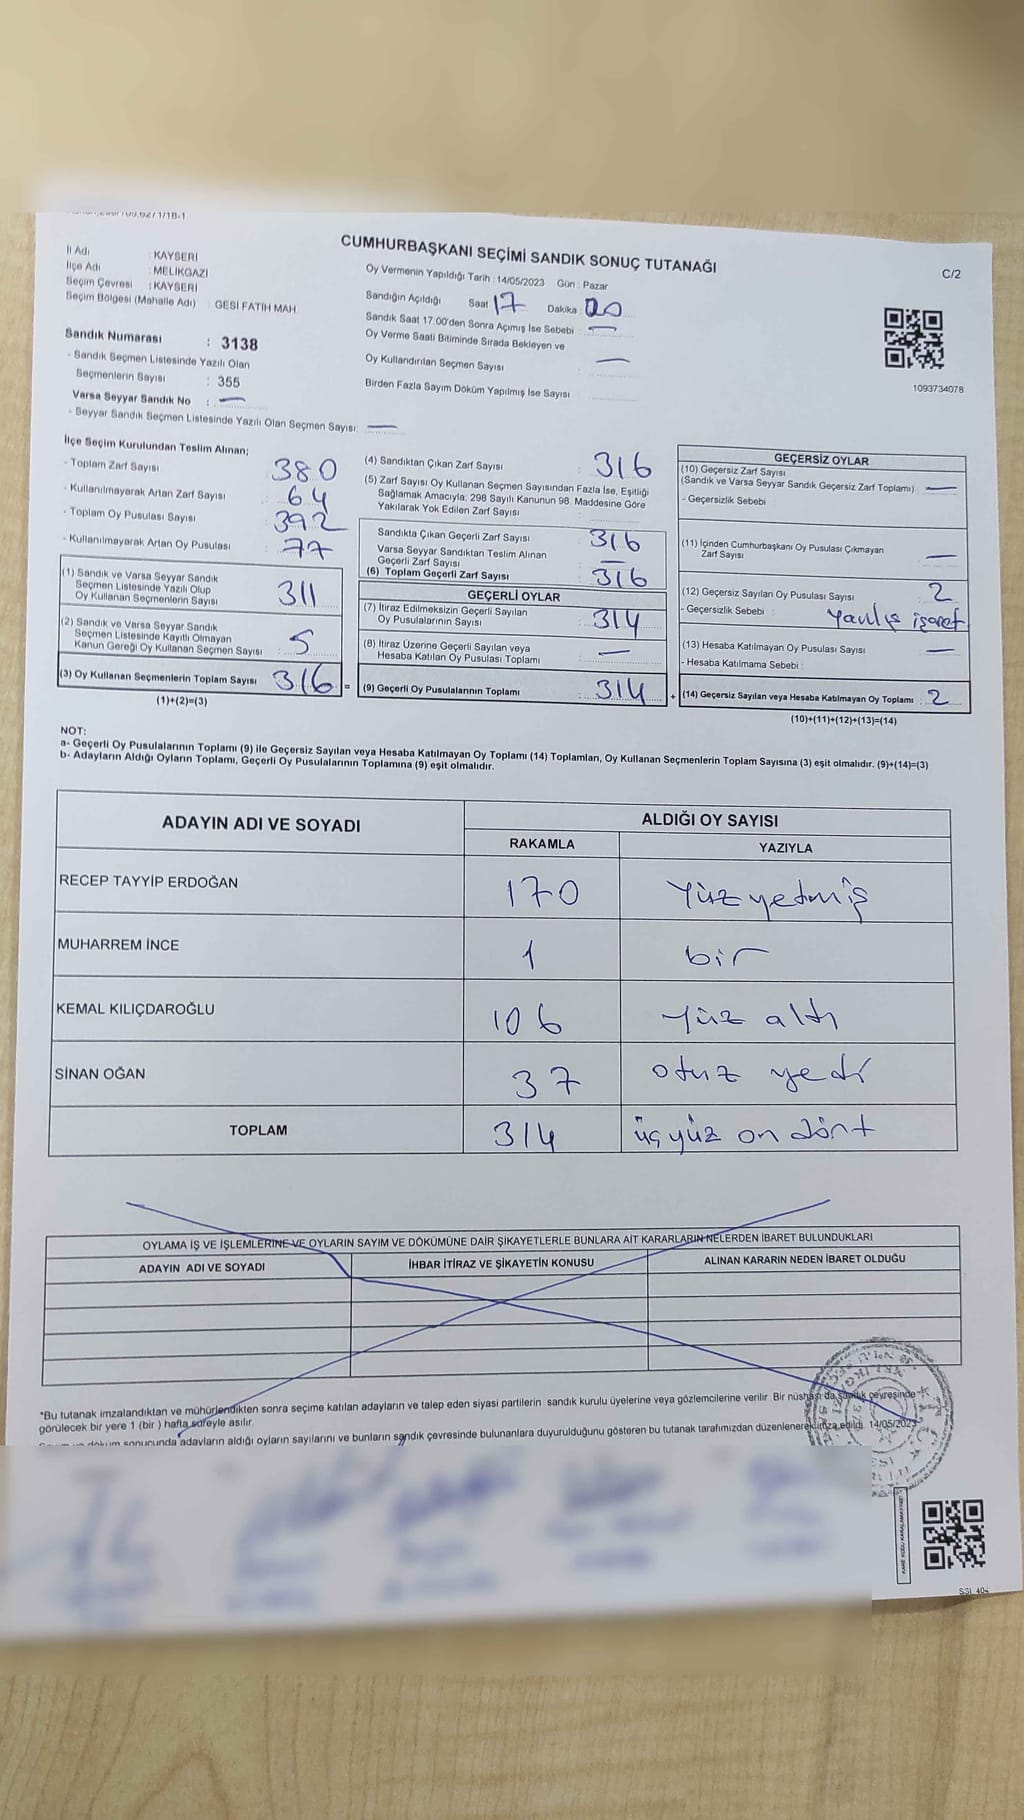 CUMHURBAŞKANI SEÇİMİ SANDIK SONUÇ TUTANAĞI
C/2
İl Adı : KAYSERİ
İlçe Adı : MELİKGAZİ
Seçim Çevresi : KAYSERİ
Seçim Bölgesi (Mahalle Adı) : GESİ FATİH MAH
Oy Vermenin Yapıldığı Tarih : 14/05/2023 Gün : Pazar
Sandığın Açıldığı Saat 17 Dakika 00
Sandık Saat 17:00'den Sonra Açımış İse Sebebi : —
Oy Verme Saati Bitiminde Sırada Bekleyen ve
Oy Kullandırılan Seçmen Sayısı : —
Birden Fazla Sayım Döküm Yapılmış İse Sayısı :
1093734078
Sandık Numarası : 3138
- Sandık Seçmen Listesinde Yazılı Olan
Seçmenlerin Sayısı : 355
Varsa Seyyar Sandık No : —
- Seyyar Sandık Seçmen Listesinde Yazılı Olan Seçmen Sayısı: —
İlçe Seçim Kurulundan Teslim Alınan;
- Toplam Zarf Sayısı : 380
- Kullanılmayarak Artan Zarf Sayısı : 64
- Toplam Oy Pusulası Sayısı : 392
- Kullanılmayarak Artan Oy Pusulası : 77
(1) Sandık ve Varsa Seyyar Sandık
Seçmen Listesinde Yazılı Olup
Oy Kullanan Seçmenlerin Sayısı : 311
(2) Sandık ve Varsa Seyyar Sandık
Seçmen Listesinde Kayıtlı Olmayan
Kanun Gereği Oy Kullanan Seçmen Sayısı : 5
(3) Oy Kullanan Seçmenlerin Toplam Sayısı : 316 =
(1)+(2)=(3)
(4) Sandıktan Çıkan Zarf Sayısı : 316
(5) Zarf Sayısı Oy Kullanan Seçmen Sayısından Fazla İse, Eşitliği
Sağlamak Amacıyla; 298 Sayılı Kanunun 98. Maddesine Göre
Yakılarak Yok Edilen Zarf Sayısı :
Sandıkta Çıkan Geçerli Zarf Sayısı : 316
Varsa Seyyar Sandıktan Teslim Alınan
Geçerli Zarf Sayısı : —
(6) Toplam Geçerli Zarf Sayısı : 316
GEÇERLİ OYLAR
(7) İtiraz Edilmeksizin Geçerli Sayılan
Oy Pusulalarının Sayısı : 314
(8) İtiraz Üzerine Geçerli Sayılan veya
Hesaba Katılan Oy Pusulası Toplamı : —
(9) Geçerli Oy Pusulalarının Toplamı : 314 +
GEÇERSİZ OYLAR
(10) Geçersiz Zarf Sayısı
(Sandık ve Varsa Seyyar Sandık Geçersiz Zarf Toplamı) : —
- Geçersizlik Sebebi :
(11) İçinden Cumhurbaşkanı Oy Pusulası Çıkmayan
Zarf Sayısı : —
(12) Geçersiz Sayılan Oy Pusulası Sayısı : 2
- Geçersizlik Sebebi : Yanlış işaret
(13) Hesaba Katılmayan Oy Pusulası Sayısı : —
- Hesaba Katılmama Sebebi :
(14) Geçersiz Sayılan veya Hesaba Katılmayan Oy Toplamı : 2
(10)+(11)+(12)+(13)=(14)
NOT:
a- Geçerli Oy Pusulalarının Toplamı (9) ile Geçersiz Sayılan veya Hesaba Katılmayan Oy Toplamı (14) Toplamları, Oy Kullanan Seçmenlerin Toplam Sayısına (3) eşit olmalıdır. (9)+(14)=(3)
b- Adayların Aldığı Oyların Toplamı, Geçerli Oy Pusulalarının Toplamına (9) eşit olmalıdır.
ADAYIN ADI VE SOYADI
ALDIĞI OY SAYISI
RAKAMLA YAZIYLA
RECEP TAYYİP ERDOĞAN 170 Yüz yetmiş
MUHARREM İNCE 1 bir
KEMAL KILIÇDAROĞLU 106 Yüz altı
SİNAN OĞAN 37 otuz yedi
TOPLAM 314 üçyüz on dört
OYLAMA İŞ VE İŞLEMLERİNE VE OYLARIN SAYIM VE DÖKÜMÜNE DAİR ŞİKAYETLERLE BUNLARA AİT KARARLARIN NELERDEN İBARET BULUNDUKLARI
ADAYIN ADI VE SOYADI İHBAR İTİRAZ VE ŞİKAYETİN KONUSU ALINAN KARARIN NEDEN İBARET OLDUĞU
*Bu tutanak imzalandıktan ve mühürlendikten sonra seçime katılan adayların ve talep eden siyasi partilerin sandık kurulu üyelerine veya gözlemcilerine verilir. Bir nüshası da sandık çevresinde
görülecek bir yere 1 (bir ) hafta süreyle asılır.
döküm sonucunda adayların aldığı oyların sayılarını ve bunların sandık çevresinde bulunanlara duyurulduğunu gösteren bu tutanak tarafımızdan düzenlenerek imza edildi. 14/05/2023
KARE KODU KARALAMAYINIZ